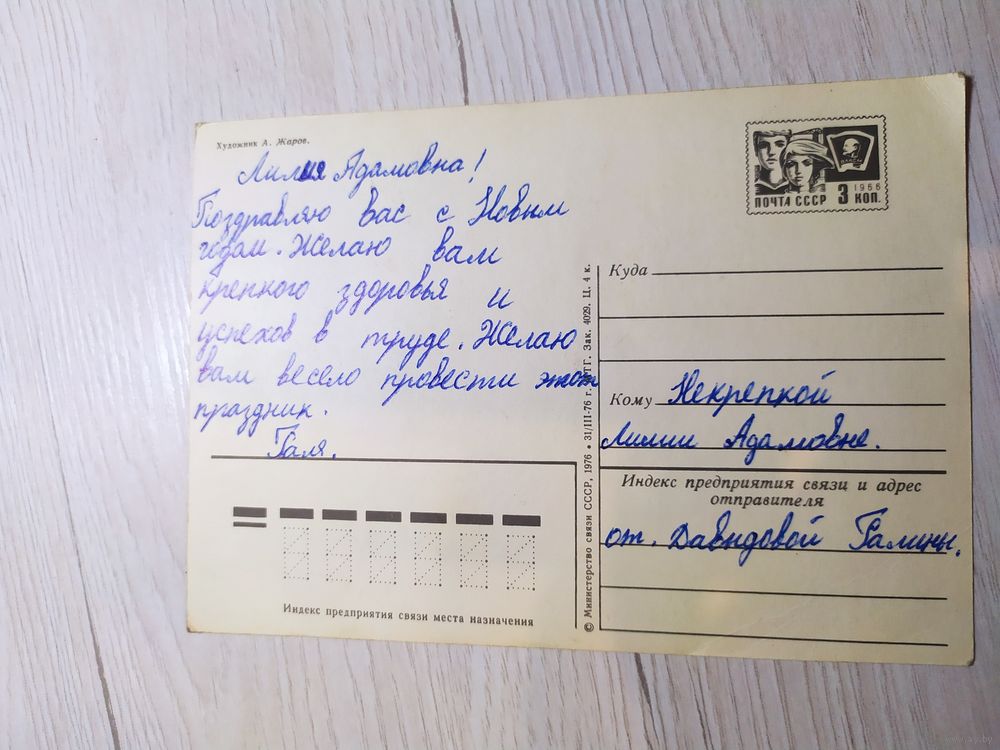 Художник А. Жаров.
Лилия Адамовна!
Поздравляю вас с Новым
годом. Желаю вам
крепкого здоровья и
успехов в труде. Желаю
вам весело провести этот
праздник.
Галя.
Индекс предприятия связи места назначения
© Министерство связи СССР, 1976 • 31/III-76 г. Зак. 4029. Ц. 4 к.
ПОЧТА СССР 3 КОП.
1966
ВЛКСМ
Куда
Кому Некрепкой
Лилии Адамовне.
Индекс предприятия связи и адрес
отправителя
от. Давыдовой Галины.